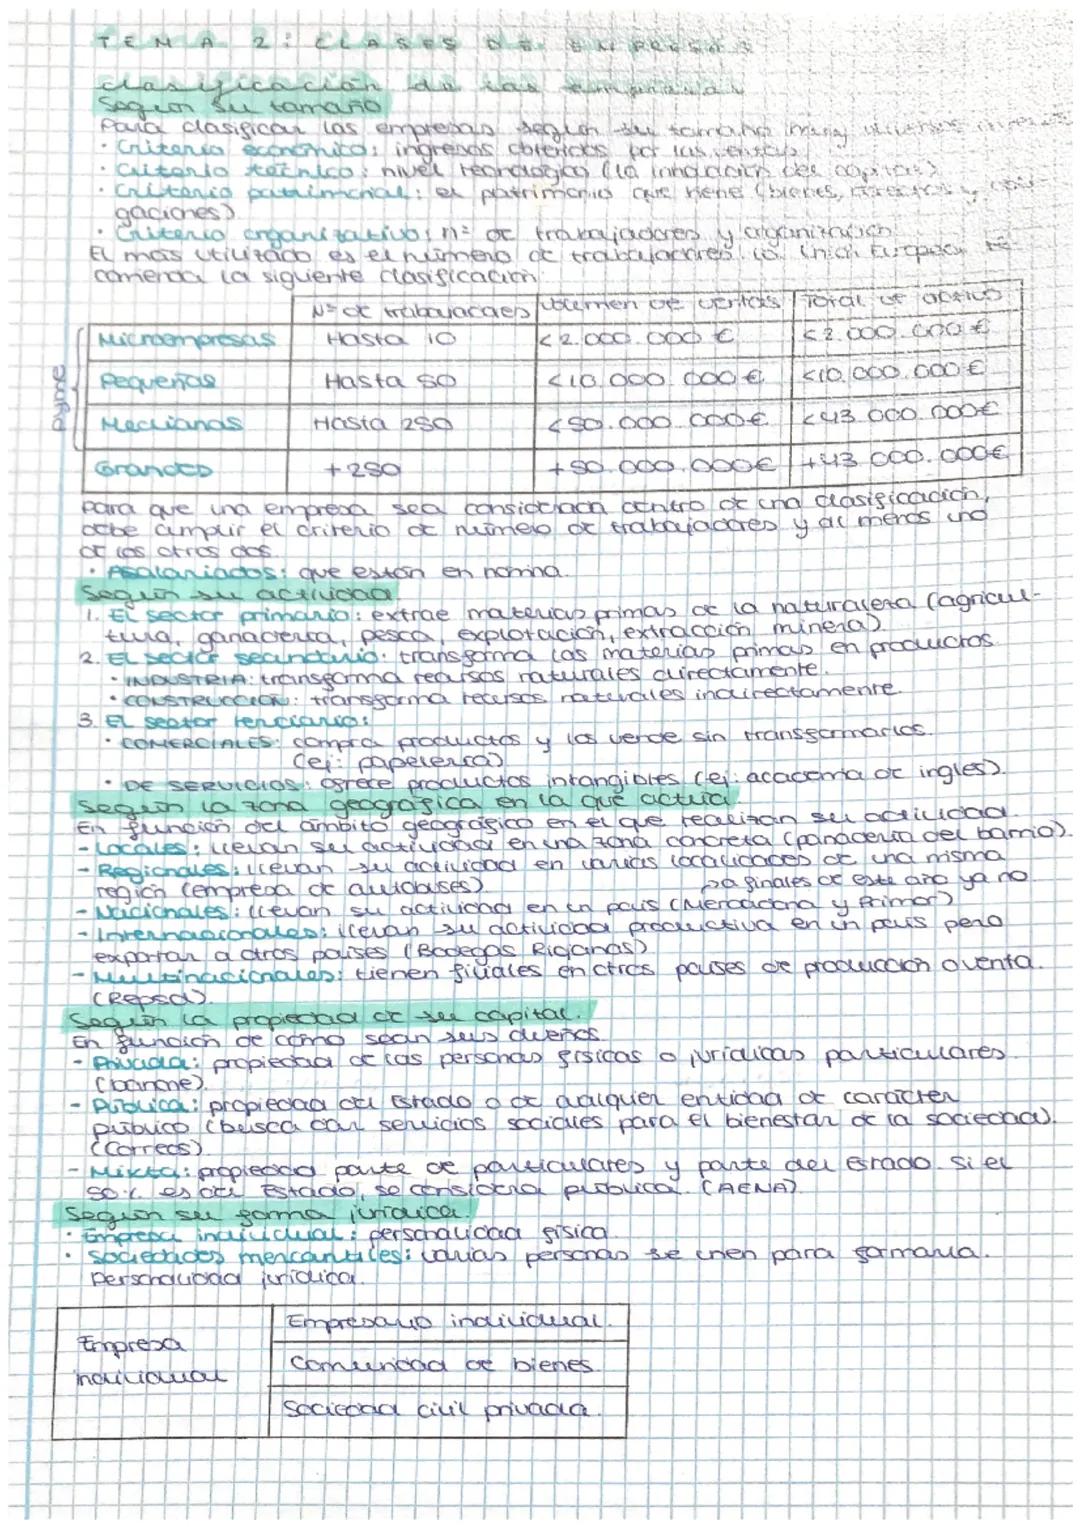 TEMA 2: CLASES DE EMPRESAS
Clasificación de las empresas
Según su tamaño
Para clasificar las empresas según su tamaño hay
· Criterio económico: ingresos obtenidos por las ventas
· Criterio técnico: nivel tecnológico (la innovación del capital)
· Criterio patrimonial: el patrimonio que tiene (bienes, derechos y obli-
gaciones)
· Criterio organizativo: nº de trabajadores y organización
El más utilizado es el número de trabajadores. La Unión Europea re-
comienda la siguiente clasificación:
Nº de trabajadores Volumen de ventas Total de activo
Microempresas Hasta 10 <2.000.000 € <2.000.000 €
Pyme
Pequeñas Hasta 50 <10.000.000 € <10.000.000 €
Medianas Hasta 250 <50.000.000€ <43.000.000€
Grandes +250 +50.000.000€ +43.000.000€
Para que una empresa sea considerada dentro de una clasificación,
debe cumplir el criterio de número de trabajadores y al menos uno
de los otros dos.
· Asalariados: que están en nómina.
Según su actividad
1. El sector primario: extrae materias primas de la naturaleza (agricul-
tura, ganadería, pesca, explotación, extracción minera).
2. El sector secundario: transforma las materias primas en productos.
· INDUSTRIA: transforma recursos naturales directamente.
· CONSTRUCCIÓN: transforma recursos naturales indirectamente.
3. El sector terciario:
· COMERCIALES: compra productos y los vende sin transformarlos.
(ej: papelería)
· DE SERVICIOS: ofrece productos intangibles (ej: academia de inglés).
Según la zona geográfica en la que actúa.
En función del ámbito geográfico en el que realizan su actividad.
- Locales: llevan su actividad en una zona concreta (panadería del barrio).
- Regionales: llevan su actividad en varias localidades de una misma
región (empresa de autobuses).
pa finales de este año ya no.
- Nacionales: llevan su actividad en un país (Mercadona y Primor)
- Internacionales: llevan su actividad productiva en un país pero
exportan a otros países (Bodegas Riojanas)
- Multinacionales: tienen filiales en otros países de producción o venta.
(Repsol).
Según la propiedad de su capital.
En función de cómo sean sus dueños.
- Privada: propiedad de las personas físicas o jurídicas particulares.
(Danone).
- Pública: propiedad del Estado o de cualquier entidad de carácter
público (busca dar servicios sociales para el bienestar de la sociedad).
(Correos).
- Mixta: propiedad parte de particulares y parte del Estado. Si el
50% es del Estado, se considera pública. (AENA).
Según su forma jurídica.
· Empresa individual: personalidad física.
· Sociedades mercantiles: varias personas se unen para formarla.
Personalidad jurídica.
Empresa
individual
Empresario individual.
Comunidad de bienes.
Sociedad civil privada.